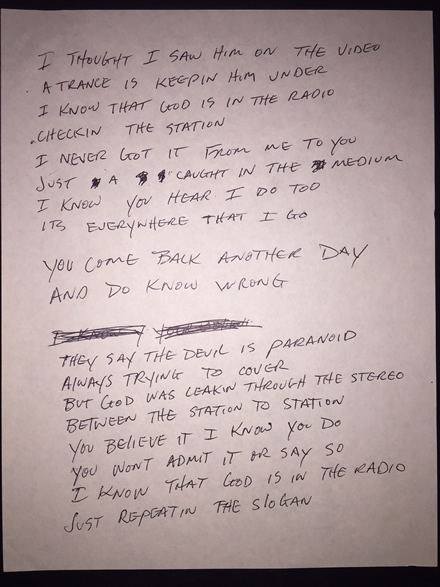 I THOUGHT I SAW HIM ON THE VIDEO
A TRANCE IS KEEPIN HIM UNDER
I KNOW THAT GOD IS IN THE RADIO
CHECKIN THE STATION
I NEVER GOT IT FROM ME TO YOU
JUST A CAUGHT IN THE MEDIUM
I KNOW YOU HEAR I DO TOO
ITS EVERYWHERE THAT I GO
YOU COME BACK ANOTHER DAY
AND DO KNOW WRONG
THEY SAY THE DEVIL IS PARANOID
ALWAYS TRYING TO COVER
BUT GOD WAS LEAKIN THROUGH THE STEREO
BETWEEN THE STATION TO STATION
YOU BELIEVE IT I KNOW YOU DO
YOU WONT ADMIT IT OR SAY SO
I KNOW THAT GOD IS IN THE RADIO
JUST REPEATIN THE SLOGAN